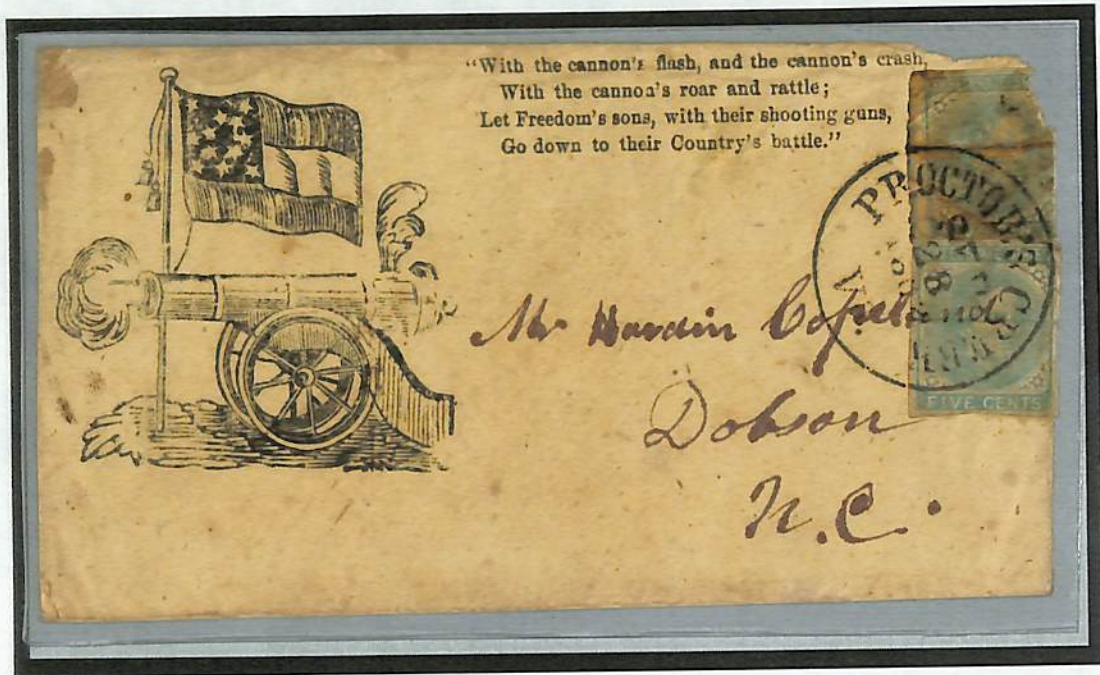 "With the cannon's flash, and the cannon's crash,
With the cannon's roar and rattle;
Let Freedom's sons, with their shooting guns,
Go down to their Country's battle."
PROCTOR'S CREEK
28
Va.
Mr Hardin Copeland
Dobson
N.C.
FIVE CENTS